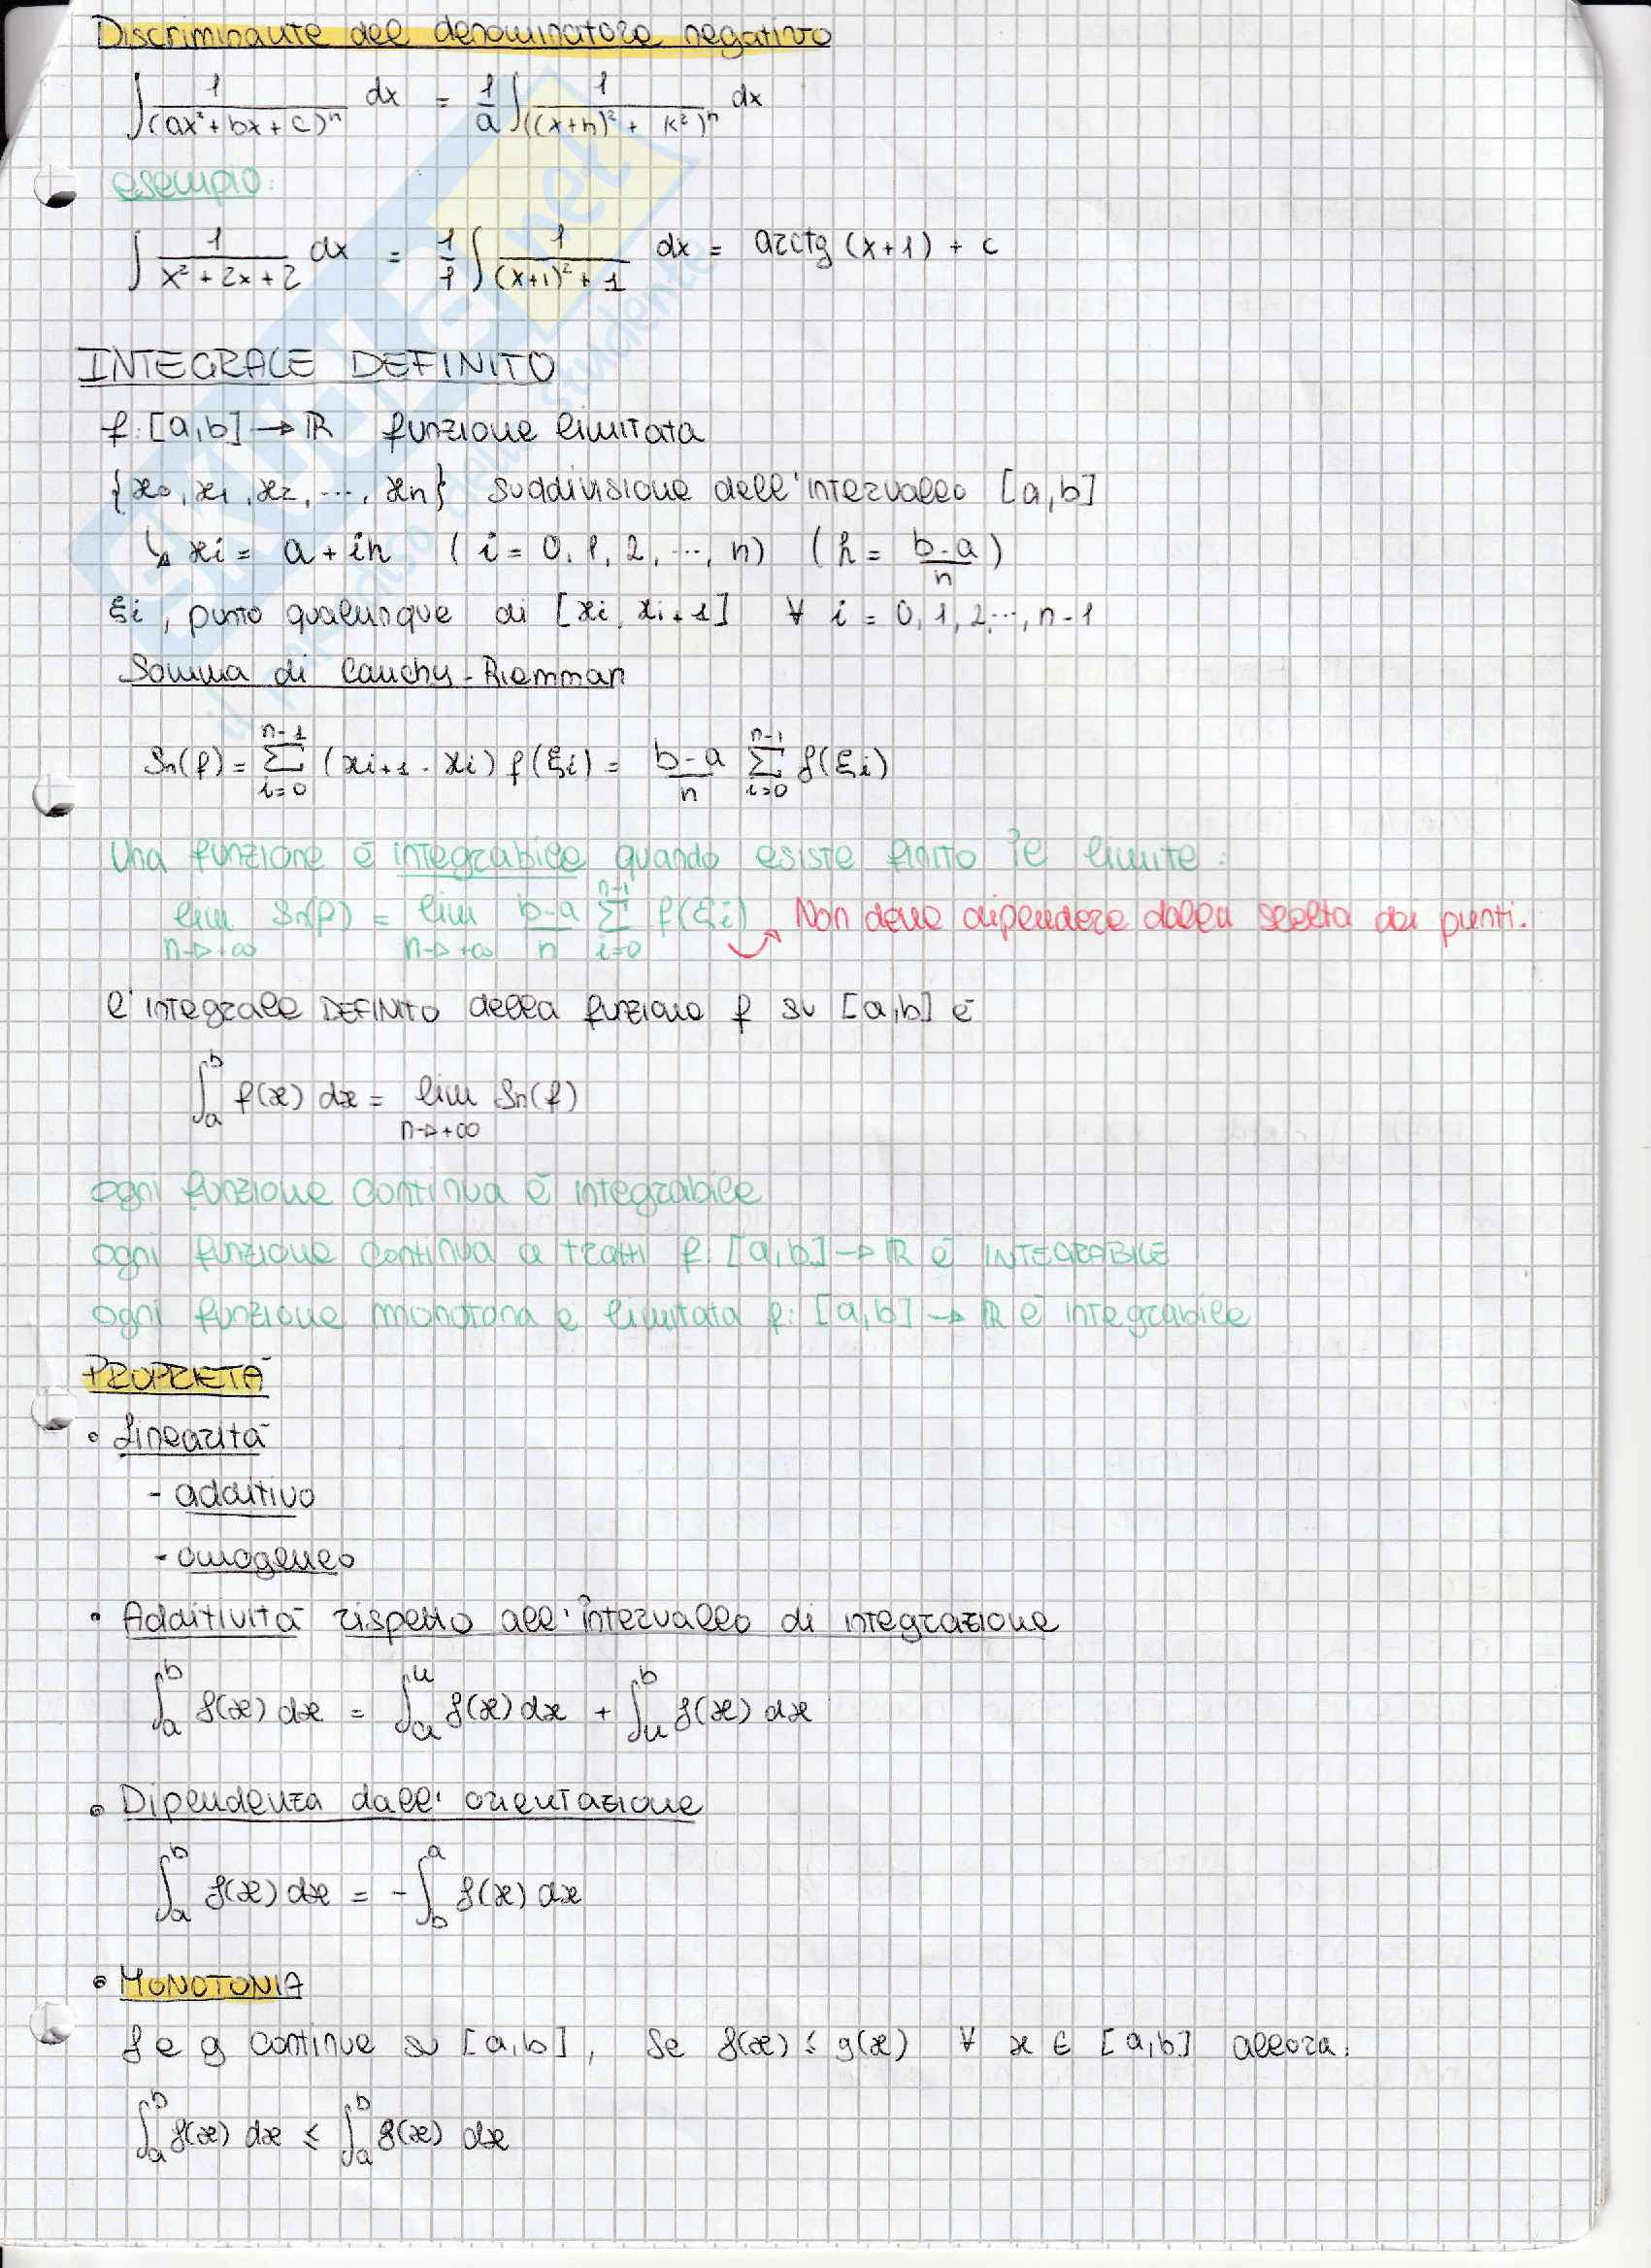 Discriminante del denominatore negativo
∫ 1/(ax²+bx+c)ⁿ dx = 1/a ∫ 1/((x+h)² + k²)ⁿ dx
esempio:
∫ 1/(x²+2x+2) dx = 1/1 ∫ 1/((x+1)²+1) dx = arctg (x+1) + c
INTEGRALE DEFINITO
f: [a,b] → ℝ funzione limitata
{x₀, x₁, x₂, ..., xn} suddivisione dell'intervallo [a,b]
↳ xi = a + ih ( i = 0, 1, 2, ..., n) ( h = (b-a)/n )
ξi, punto qualunque di [xi, xi+1] ∀ i = 0, 1, 2, ..., n-1
Somma di Cauchy-Riemman
Sn(f) = Σ_{i=0}^{n-1} (xi+1 - xi) f(ξi) = (b-a)/n Σ_{i=0}^{n-1} f(ξi)
Una funzione è integrabile quando esiste finito il limite:
lim_{n→+∞} Sn(f) = lim_{n→+∞} (b-a)/n Σ_{i=0}^{n-1} f(ξi) Non deve dipendere dalla scelta dei punti.
l'integrale DEFINITO della funzione f su [a,b] è
∫_a^b f(x) dx = lim_{n→+∞} Sn(f)
ogni funzione continua è integrabile
ogni funzione continua a tratti f: [a,b] → ℝ è INTEGRABILE
ogni funzione monotona e limitata f: [a,b] → ℝ è integrabile
PROPRIETÀ
• Linearità
- additivo
- omogeneo
• Additività rispetto all'intervallo di integrazione
∫_a^b f(x) dx = ∫_a^u f(x) dx + ∫_u^b f(x) dx
• Dipendenza dall'orientazione
∫_a^b f(x) dx = -∫_b^a f(x) dx
• MONOTONIA
f e g continue su [a,b], se f(x) ≤ g(x) ∀ x ∈ [a,b] allora:
∫_a^b f(x) dx ≤ ∫_a^b g(x) dx